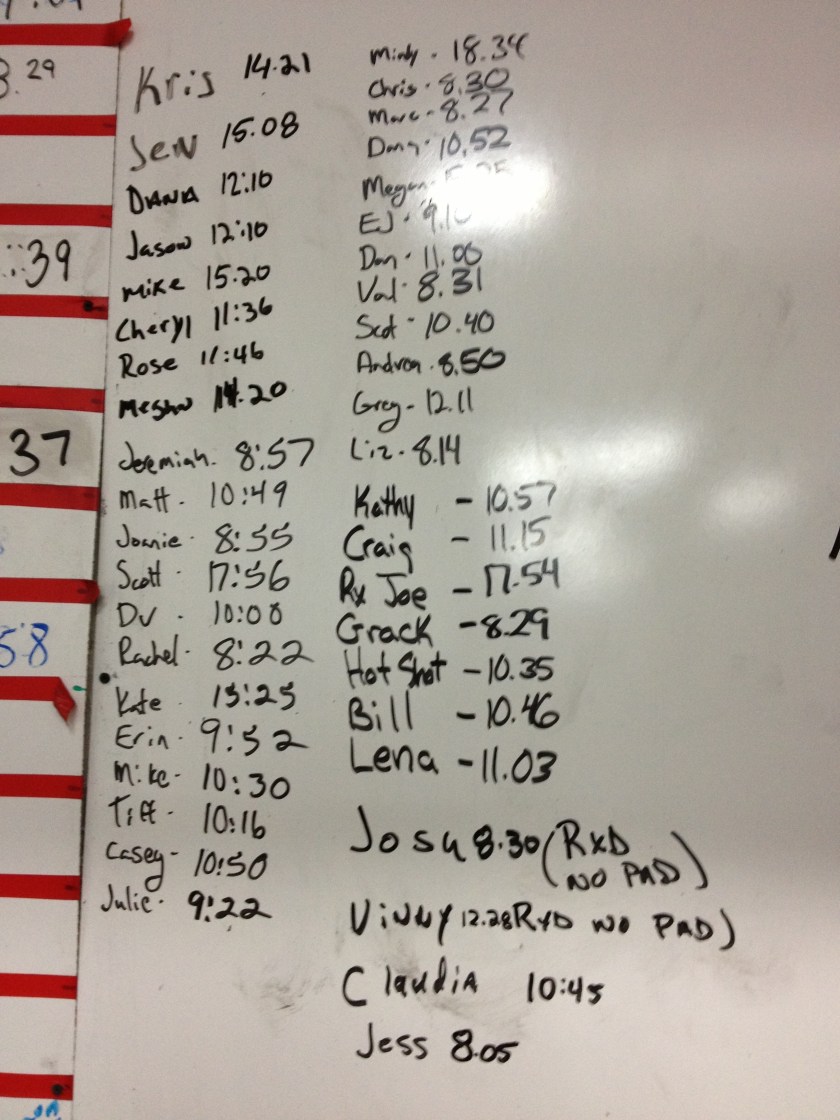 8.29
:39
37
58
Kris 14.21
Jen 15.08
DIANA 12:10
Jason 12:10
Mike 15.20
Cheryl 11:36
Rose 11:46
Meghan 14.20
Jeremiah. 8:57
Matt. 10:49
Joanie. 8:55
Scott. 17:56
DV. 10:00
Rachel. 8:22
Kate. 15:25
Erin. 9:52
Mike- 10:30
Tiff- 10:16
Casey- 10:50
Julie. 9:22
Mindy. 18.34
Chris. 8.30
Marc- 8.27
Dany. 10.52
Megan-
EJ. 9.1
Dan. 11.00
Val. 8.31
Scot- 10.40
Andrea. 8.50
Greg- 12.11
Liz. 8.14
Kathy - 10.57
Craig - 11.15
Rx Joe - 17.54
Grack - 8.29
Hot Shot - 10.35
Bill - 10.46
Lena - 11.03
Josh 8.30 (RXD
NO PAD)
Vinny 12.28 RXD NO PAD)
Claudia 10:45
Jess 8.05